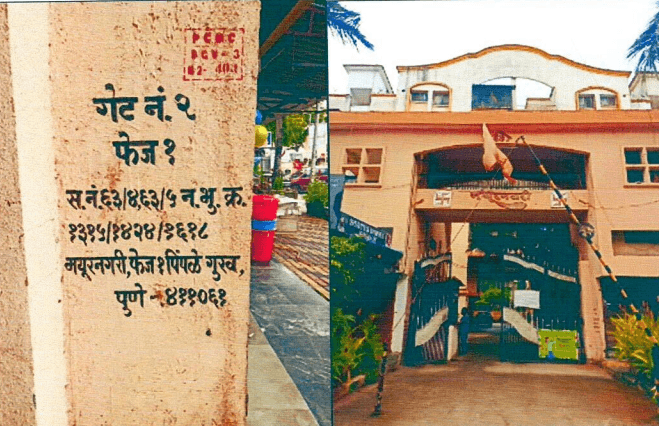 PCMC
गेट नं. २
फेज १
स. नं. ६३/४६३/५ न. भु. क्र.
१३१५/१४२४/१६१८
मयूरनगरी, फेज १ पिंपळे गुरव,
पुणे - ४११०६१